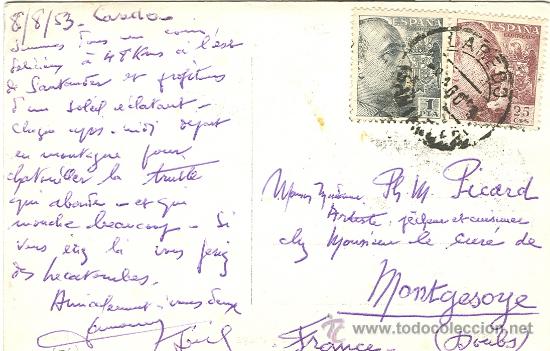 8/8/53. Laredo
Sommes dans un coin
délicieux à 48 Kms à l'est
de Santander et profitons
d'un soleil éclatant -
Chaque après-midi départ
en montagne pour
chatouiller la truite
qui abonde - et que
mouche beaucoup - Si
vous étiez là vous feriez
des hécatombes.
Amicalement à vous deux
ESPAÑA
1
PTA
ESPAÑA
25
CTS
LAREDO
Ph. M. Picard
Artiste, pêcheur et cuisinier
chez Monsieur le curé de
Montgesoye
France (Doubs)
todocoleccion
www.todocoleccion.net